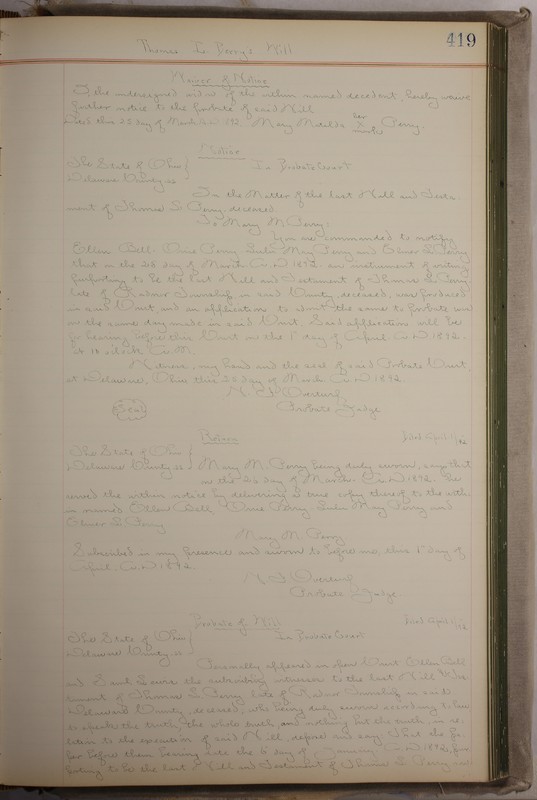 419
Thomas L. Perry's Will
Waiver of Notice
I, the undersigned widow of the within named decedent, hereby waive
further notice to the probate of said Will
this 25 day of March A.D. 1892. Mary Matilda her X mark Perry.
Notice
The State of Ohio
Delaware County, ss In Probate Court
In the Matter of the last Will and Testa-
ment of Thomas L. Perry, deceased
To Mary M. Perry:
You are commanded to notify
Ellen Bell, Perry, Lulu May Perry and Elmer L. Perry
that on the 25 day of March A.D. 1892 an instrument of writing
purporting to be the last Will and Testament of Thomas L. Perry
late of Radnor Township in said County, deceased, was produced
in said Court, and an application to admit the same to probate was
on the same day made in said Court. Said application will be
for hearing before this Court on the 1" day of April A.D. 1892.
at 10 o'clock A.M.
Witness, my hand and the seal of said Probate Court,
at Delaware, Ohio this 25 day of March A.D. 1892.
Overturf
Seal Probate Judge
Return Filed April 1/92
The State of Ohio
Delaware County, ss Mary M. Perry being duly sworn, says that
on the 25 day of March A.D. 1892, she
served the within notice by delivering a true copy thereof to the with-
in named Ellen Bell, Perry, Lulu May Perry and
Elmer L. Perry
Mary M. Perry
Subscribed in my presence and sworn to before me, this 1" day of
April A.D. 1892
Overturf
Probate Judge
Probate of Will Filed April 1/92
The State of Ohio
Delaware County, ss In Probate Court
Personally appeared in open Court Ellen Bell
and the subscribing witnesses to the last Will & Tes-
tament of Thomas L. Perry late of Radnor Township in said
Delaware County, deceased, who being duly sworn according to law
to speak the truth, the whole truth and nothing but the truth, in re-
lation to the execution of said Will, depose and say, that the pa-
per before them bearing date the day of January A.D. 1892, pur-
porting to be the last Will and Testament of Thomas L. Perry